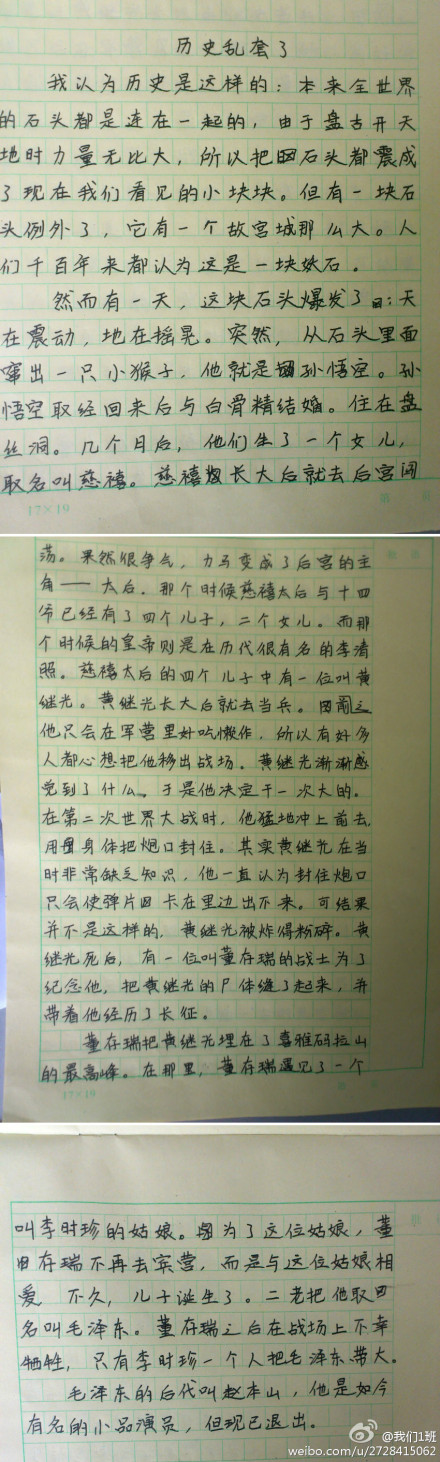 历史乱套了
我认为历史是这样的：本来全世界
的石头都是连在一起的，由于盘古开天
地时力量无比大，所以把石头都震成
了现在我们看见的小块块。但有一块石
头例外了，它有一个故宫城那么大。人
们千百年来都认为这是一块妖石。
然而有一天，这块石头爆发了：天
在震动，地在摇晃。突然，从石头里面
窜出一只小猴子，他就是孙悟空。孙
悟空取经回来后与白骨精结婚。住在盘
丝洞。几个月后，他们生了一个女儿，
取名叫慈禧。慈禧长大后就去后宫闯
17×19
荡。果然很争气，力马变成了后宫的主
角——太后。那个时候慈禧太后与十四
爷已经有了四个儿子，二个女儿。而那
个时候的皇帝则是在历代很有名的李清
照。慈禧太后的四个儿子中有一位叫黄
继光。黄继光长大后就去当兵。
他只会在军营里好吃懒作，所以有好多
人都心想把他移出战场。黄继光渐渐感
觉到了什么。于是他决定干一次大的。
在第二次世界大战时，他猛地冲上前去，
用身体把炮口封住。其实黄继光在当
时非常缺乏知识，他一直认为封住炮口
只会使弹片卡在里边出不来。可结果
并不是这样的，黄继光被炸得粉碎。黄
继光死后，有一位叫董存瑞的战士为了
纪念他，把黄继光的尸体缝了起来，并
带着他经历了长征。
董存瑞把黄继光埋在了喜雅码拉山
的最高峰。在那里，董存瑞遇见了一个
17×19
叫李时珍的姑娘。因为了这位姑娘，董
存瑞不再去宾营，而是与这位姑娘相
爱 不久，儿子诞生了。二老把他取
名叫毛泽东。董存瑞之后在战场上不幸
牺牲，只有李时珍一个人把毛泽东带大。
毛泽东的后代叫赵本山，他是如今
有名的小品演员，但现已退出。
@我们1班
weibo.com/u/2728415062